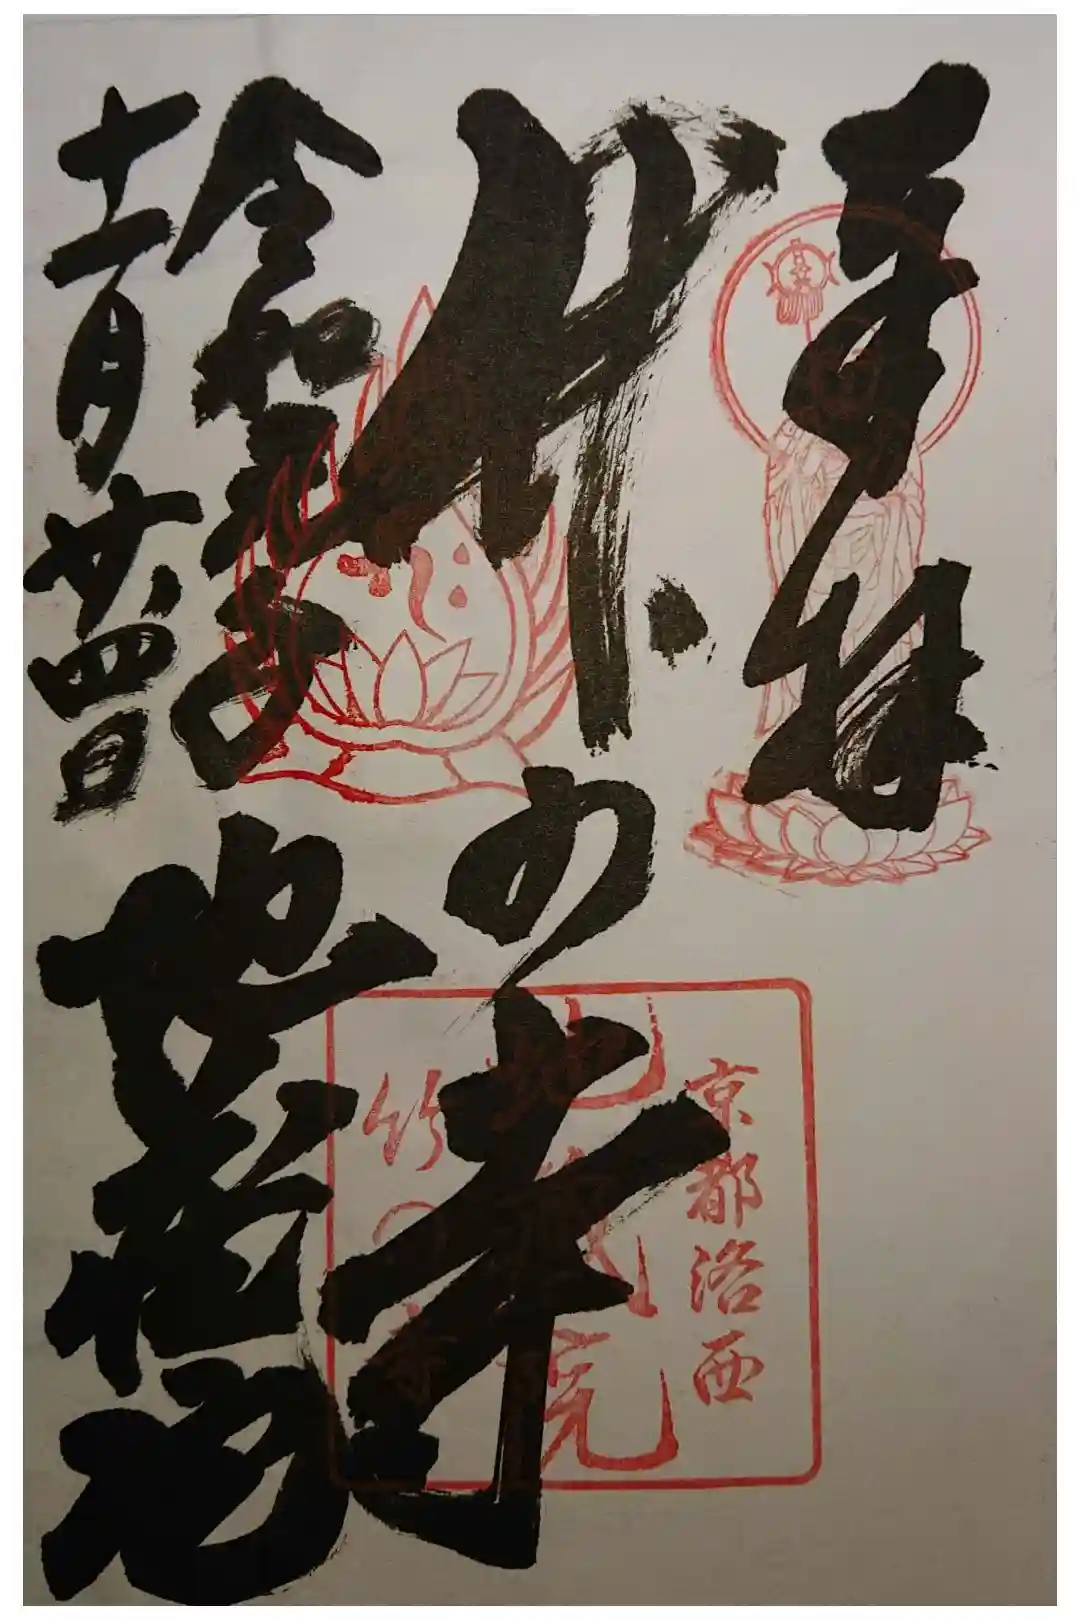 奉拝
竹の寺
令和
年
十一月廿四日
地蔵院
京都洛西
地蔵院
竹の寺